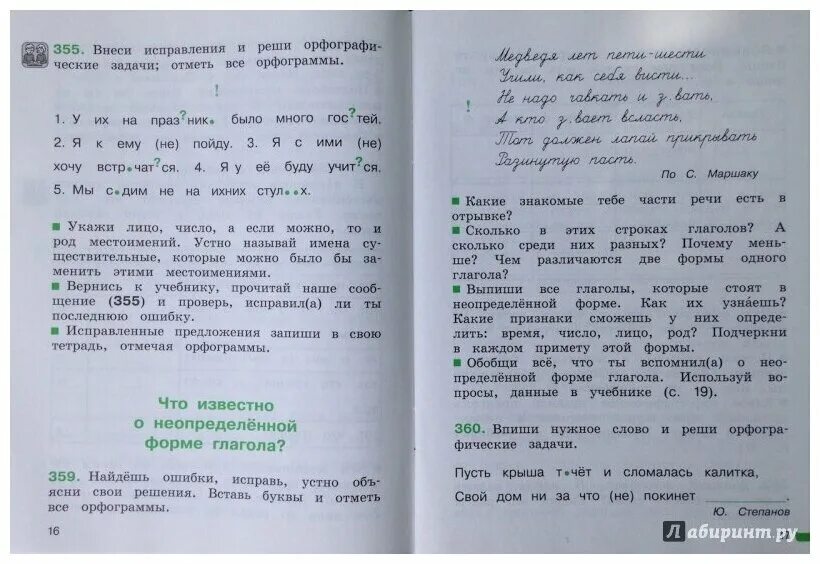 355. Внеси исправления и реши орфографи-
ческие задачи; отметь все орфограммы.
!
1. У их на праз?ник• было много гос?тей.
2. Я к ему (не) пойду. 3. Я с ими (не)
хочу встр•чат?ся. 4. Я у её буду учит?ся.
5. Мы с•дим не на ихних стул••х.
■ Укажи лицо, число, а если можно, то и
род местоимений. Устно называй имена су-
ществительные, которые можно было бы за-
менить этими местоимениями.
■ Вернись к учебнику, прочитай наше сооб-
щение (355) и проверь, исправил(а) ли ты
последнюю ошибку.
■ Исправленные предложения запиши в свою
тетрадь, отмечая орфограммы.
Что известно
о неопределённой
форме глагола?
359. Найдёшь ошибки, исправь, устно объ-
ясни свои решения. Вставь буквы и отметь
все орфограммы.
16
Медведя лет пети-шести
Учили, как себя висти...
! Не надо чавкать и з.вать,
А кто з.вает всласть,
Тот должен лапай прикрывать
Разинутую пасть.
По С. Маршаку
■ Какие знакомые тебе части речи есть в
отрывке?
■ Сколько в этих строках глаголов? А
сколько среди них разных? Почему мень-
ше? Чем различаются две формы одного
глагола?
■ Выпиши все глаголы, которые стоят в
неопределённой форме. Как их узнаёшь?
Какие признаки сможешь у них опреде-
лить: время, число, лицо, род? Подчеркни
в каждом примету этой формы.
■ Обобщи всё, что ты вспомнил(а) о нео-
пределённой форме глагола. Используй во-
просы, данные в учебнике (с. 19).
360. Впиши нужное слово и реши орфогра-
фические задачи.
Пусть крыша т•чёт и сломалась калитка,
Свой дом ни за что (не) покинет ________.
Ю. Степанов
Лабиринт.ру